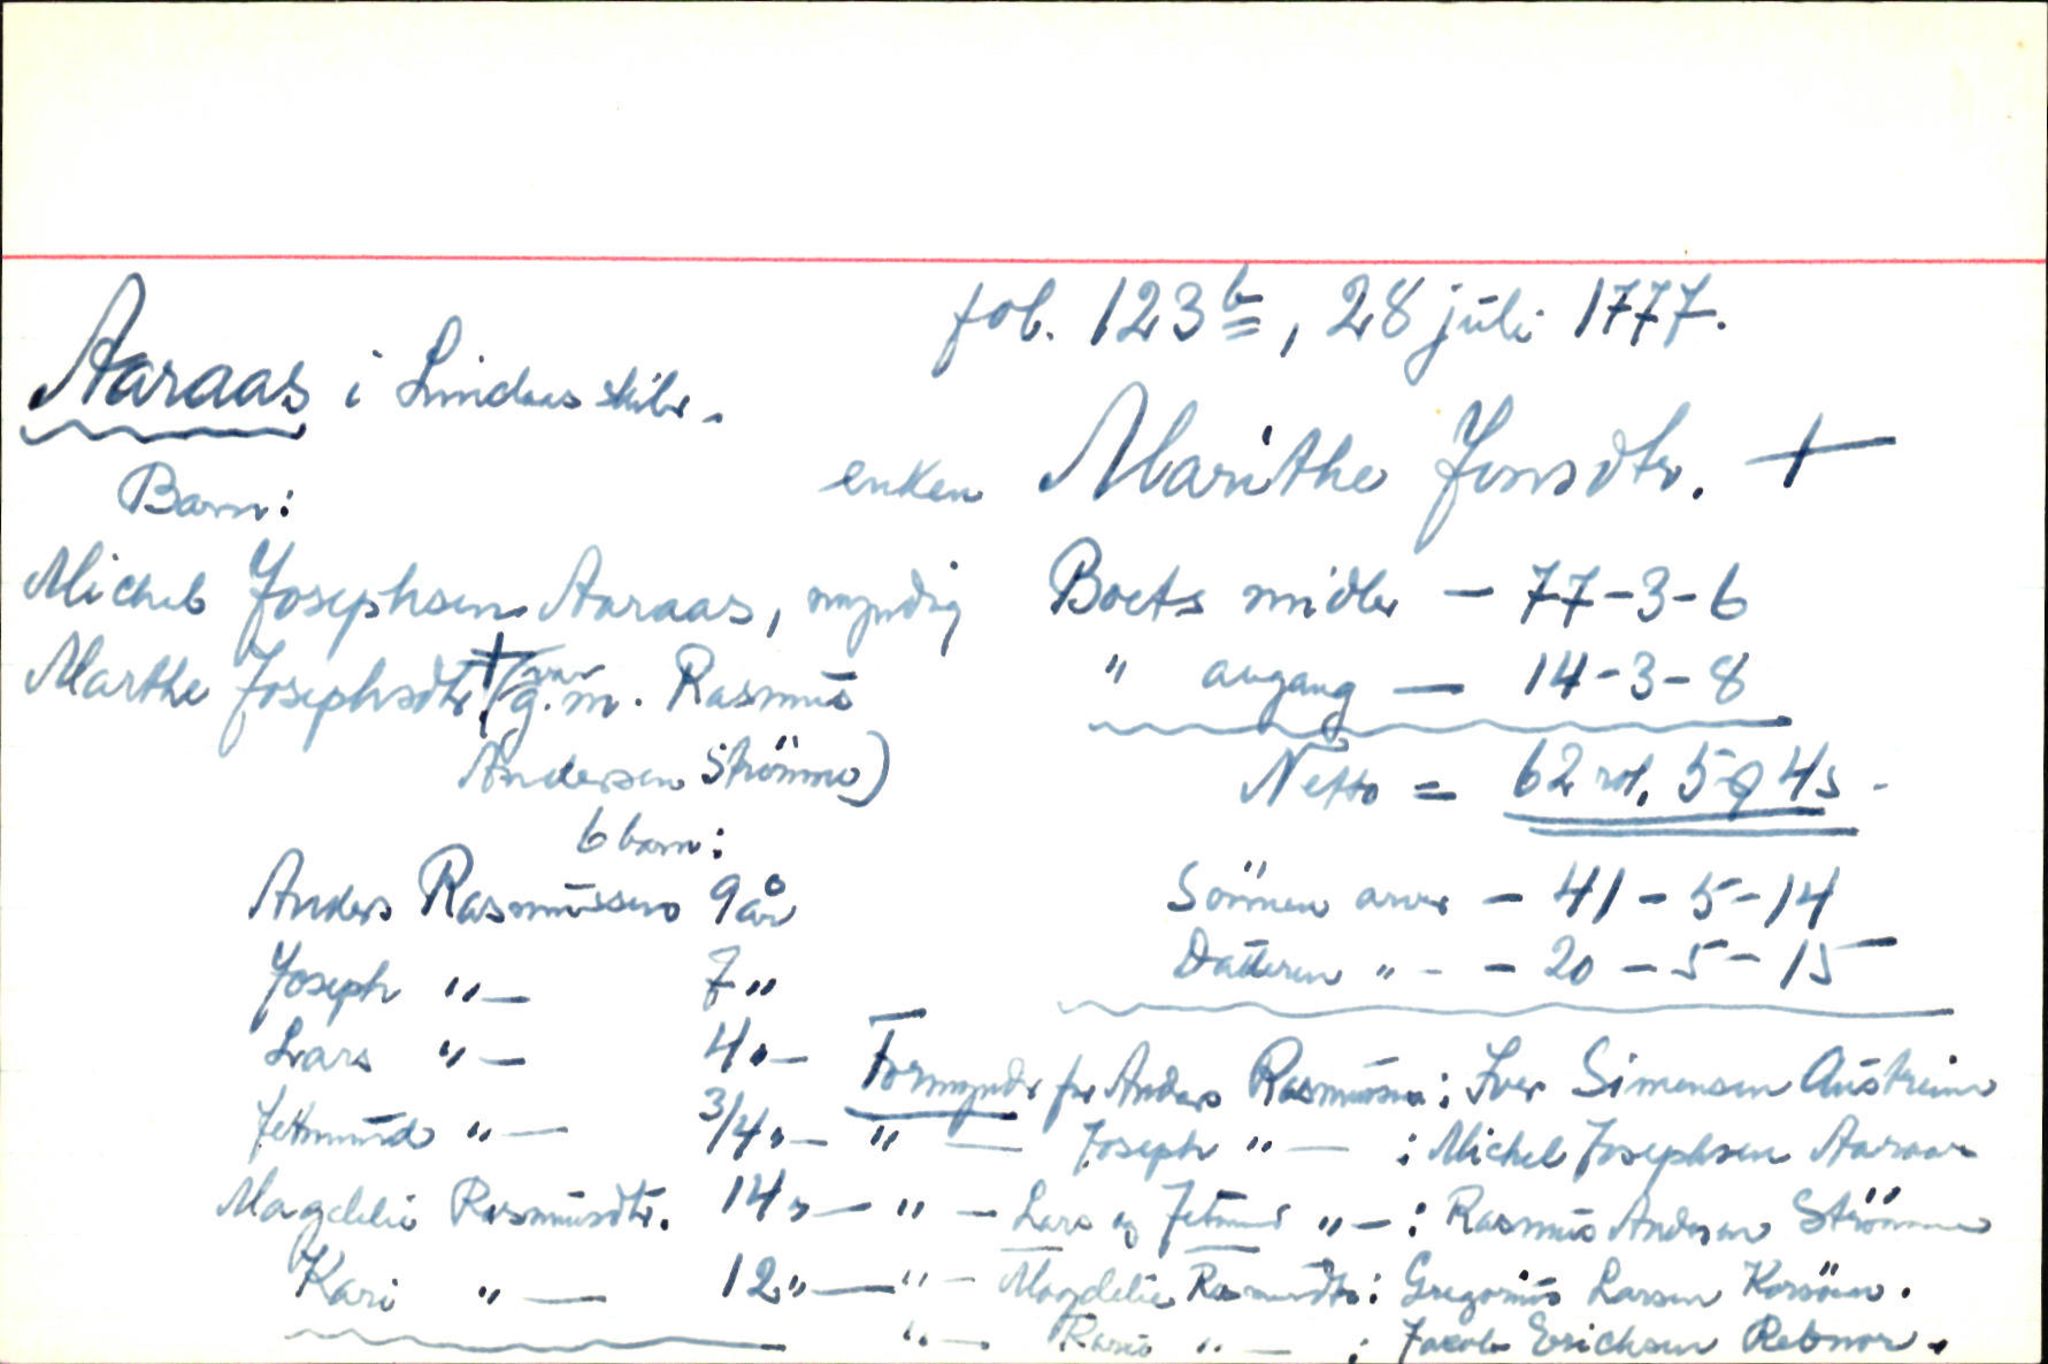 fol. 123b, 28 juli 1777.
Aaraas i Lindaas skibr.
enken Marithe Jonsdtr. +
Barn:
Michel Josephsen Aaraas, myndig
Marthe Josephsdtr.+ (var g.m. Rasmus
Andersen Strömme)
6 barn:
Anders Rasmussen 9 år
Joseph " — 7 "
Lars " — 4 " —
Jetmund " — 3/4 " —
Magdeli Rasmusdtr. 14 " —
Kari " — 12 " —
Boets midler — 77-3-6
" avgang — 14-3-8
Netto = 62 rd. 5 q 4 s -
Sönnen arver — 41-5-14
Datteren " - — 20-5-15
Formynder for Anders Rasmussen: Iver Simensen Austreim
" — Joseph " — : Michel Josephsen Aaraas
" — Lars og Jetmund " — : Rasmus Andersen Strömme
" — Magdelie Rasmusdtr: Gregorius Larsen Korsöen.
" — Kari " — : Jacob Erichsen Rebnor.